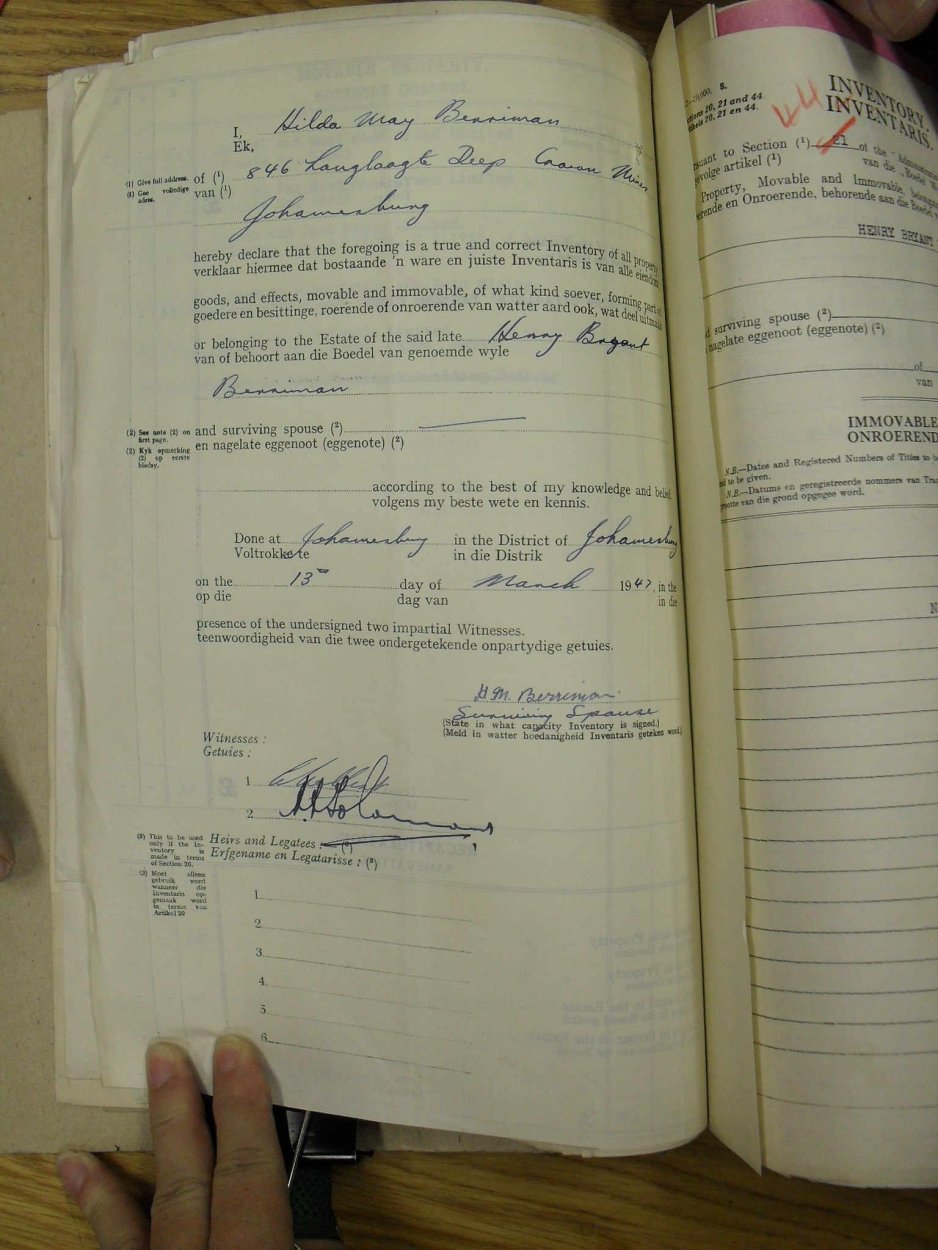 I, Hilda May Berriman
Ek,
(1) Give full address. of (1) 846 Langlaagte Deep Crown Mines
(1) Gee volledige adres. van (1)
Johannesburg
hereby declare that the foregoing is a true and correct Inventory of all property
verklaar hiermee dat bostaande 'n ware en juiste Inventaris is van alle eiendom
goods, and effects, movable and immovable, of what kind soever, forming part of
goedere en besittinge, roerende of onroerende van watter aard ook, wat deel uitmaak
or belonging to the Estate of the said late Henry Bryant
van of behoort aan die Boedel van genoemde wyle
Berriman
(2) See note (2) on first page. and surviving spouse (2)
(2) Kyk opmerking (2) op eerste bladsy. en nagelate eggenoot (eggenote) (2)
according to the best of my knowledge and belief
volgens my beste wete en kennis.
Done at Johannesburg in the District of Johannesburg
Voltrokke te in die Distrik
on the 13th day of March 1947, in the
op die dag van in die
presence of the undersigned two impartial Witnesses.
teenwoordigheid van die twee ondergetekende onpartydige getuies.
H.M. Berriman
Surviving Spouse
(State in what capacity Inventory is signed.)
(Meld in watter hoedanigheid Inventaris geteken word.)
Witnesses :
Getuies :
1
2
(3) This to be used only if the Inventory is made in terms of Section 20.
Heirs and Legatees : (3)
Erfgename en Legatarisse : (3)
(3) Moet alleen gebruik word wanneer die Inventaris opgemaak word in terme van Artikel 20
1.
2.
3.
4.
5.
6.
INVENTORY
INVENTARIS.
20, 21 and 44.
20, 21 en 44.
to Section (1) 21 of the
artikel (1) van die
Property, Movable and Immovable,
en Onroerende, behorende aan die Boedel
HENRY BRYANT
surviving spouse (2)
nagelate eggenoot (eggenote) (2)
of
van
IMMOVABLE
ONROEREND
N.B.—Dates and Registered Numbers of Titles to be
to be given.
N.B.—Datums en geregistreerde nommers van
van die grond opgegee word.